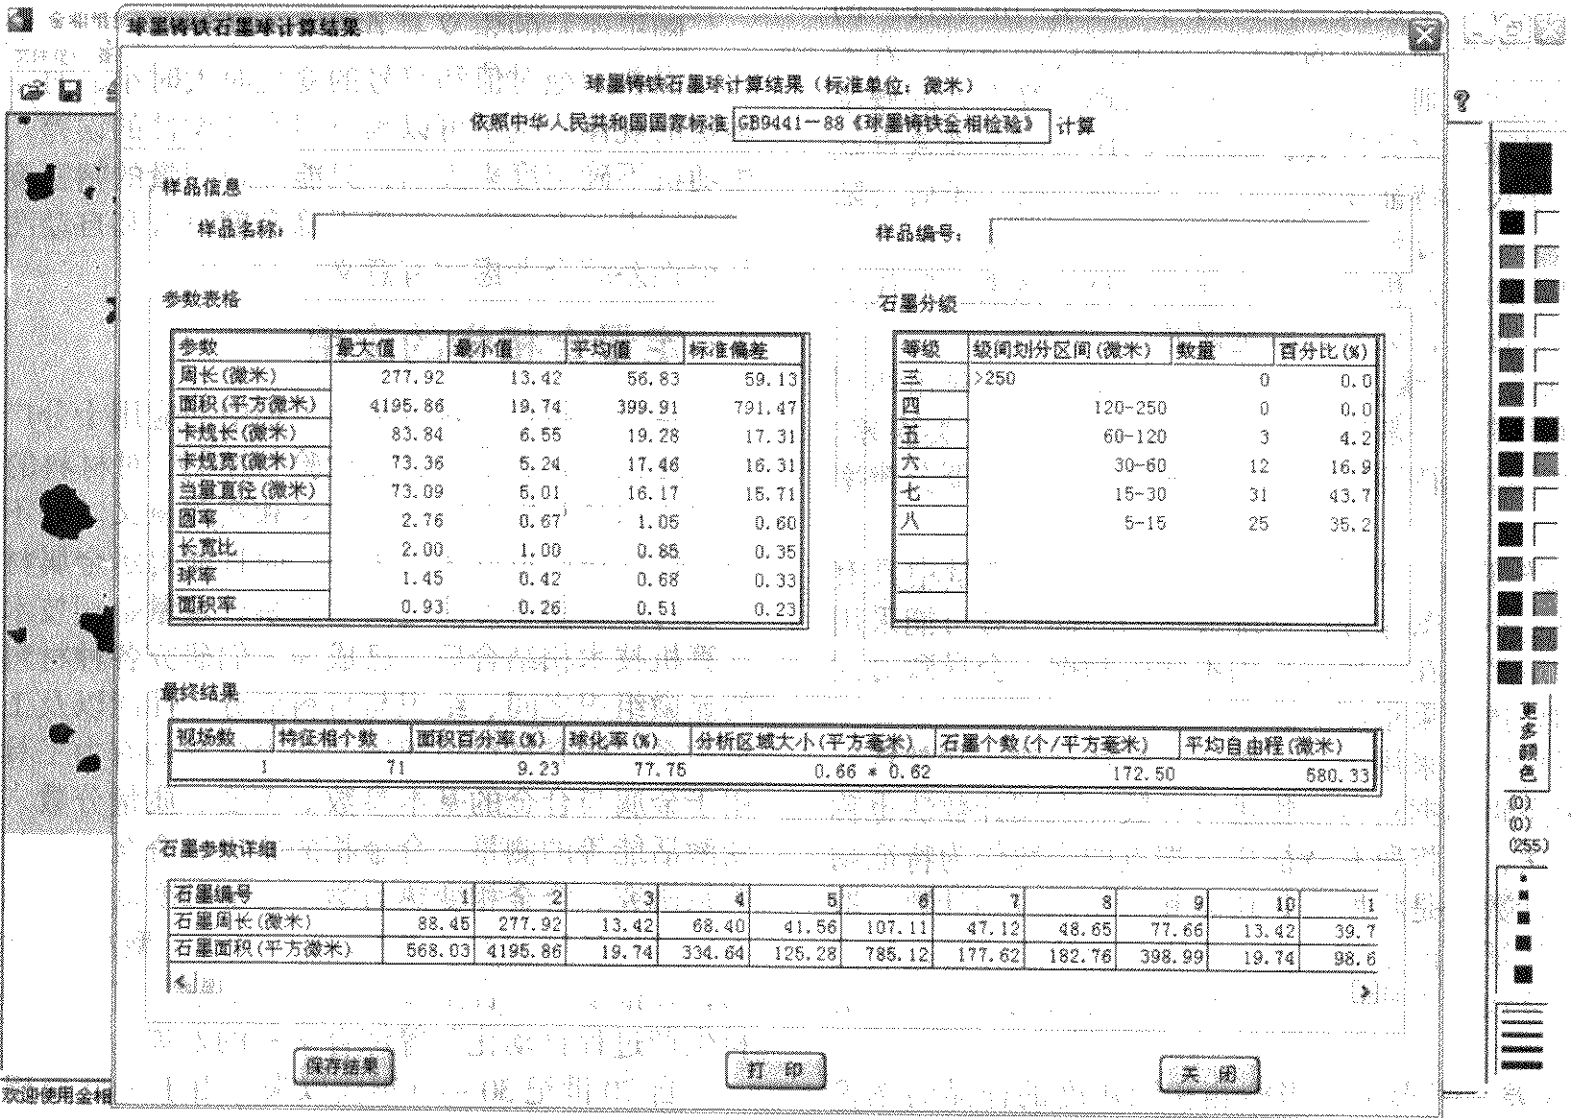 球墨铸铁石墨球计算结果
球墨铸铁石墨球计算结果（标准单位：微米）
依照中华人民共和国国家标准 GB9441－88《球墨铸铁金相检验》 计算
样品信息
样品名称： 样品编号：
参数表格 石墨分级
参数 最大值 最小值 平均值 标准偏差
周长(微米) 277.92 13.42 56.83 59.13
面积(平方微米) 4195.86 19.74 399.91 791.47
卡规长(微米) 83.84 6.55 19.28 17.31
卡规宽(微米) 73.36 5.24 17.46 16.31
当量直径(微米) 73.09 5.01 16.17 15.71
圆率 2.76 0.67 1.05 0.60
长宽比 2.00 1.00 0.85 0.35
球率 1.45 0.42 0.68 0.33
面积率 0.93 0.26 0.51 0.23
等级 级间划分区间(微米) 数量 百分比(%)
三 >250 0 0.0
四 120-250 0 0.0
五 60-120 3 4.2
六 30-60 12 16.9
七 15-30 31 43.7
八 5-15 25 35.2
最终结果
视场数 特征相个数 面积百分率(%) 球化率(%) 分析区域大小(平方毫米) 石墨个数(个/平方毫米) 平均自由程(微米)
1 71 9.23 77.75 0.66 * 0.62 172.50 580.33
石墨参数详细
石墨编号 1 2 3 4 5 6 7 8 9 10 1
石墨周长(微米) 88.45 277.92 13.42 68.40 41.56 107.11 47.12 48.65 77.66 13.42 39.7
石墨面积(平方微米) 568.03 4195.86 19.74 334.64 125.28 785.12 177.62 182.76 398.99 19.74 98.6
保存结果 打 印 关 闭
更多颜色
(0)
(0)
(255)
欢迎使用金相